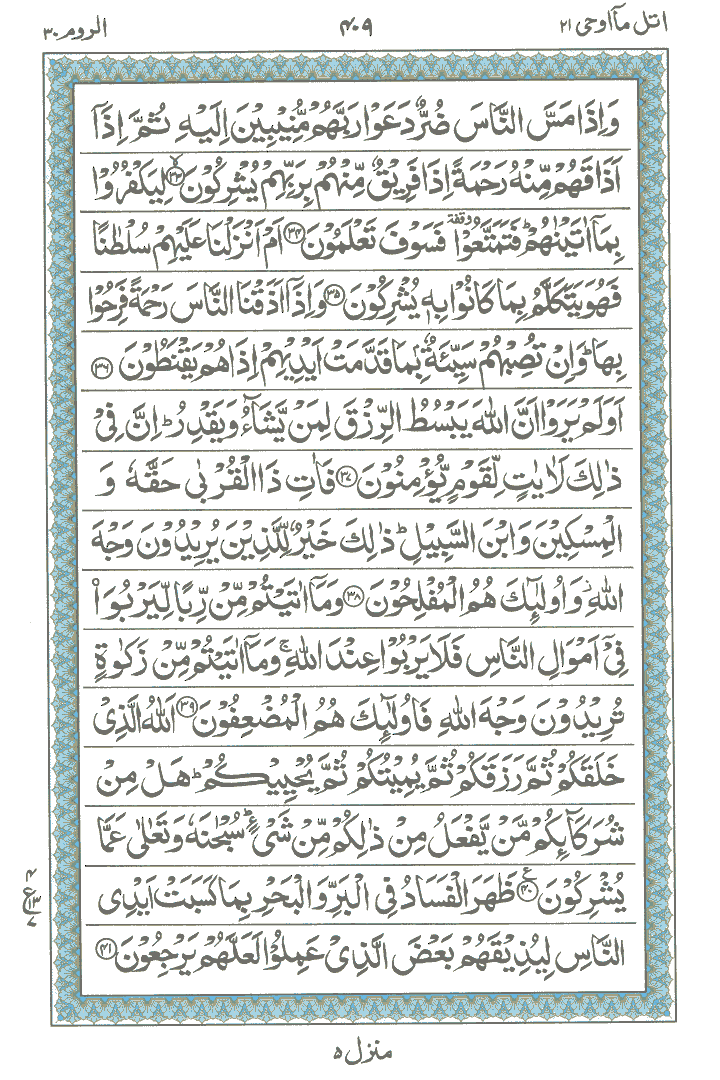 اتل مآ اوحی ۲۱ ۴۰۹ الروم ۳۰
وَاِذَا مَسَّ النَّاسَ ضُرٌّ دَعَوْا رَبَّهُمْ مُّنِيْبِيْنَ اِلَيْهِ ثُمَّ اِذَآ
اَذَاقَهُمْ مِّنْهُ رَحْمَةً اِذَا فَرِيْقٌ مِّنْهُمْ بِرَبِّهِمْ يُشْرِكُوْنَ ۙ۳۳ لِيَكْفُرُوْا
بِمَآ اٰتَيْنٰهُمْ ؕ فَتَمَتَّعُوْا وقفة فَسَوْفَ تَعْلَمُوْنَ ۳۴ اَمْ اَنْزَلْنَا عَلَيْهِمْ سُلْطٰنًا
فَهُوَ يَتَكَلَّمُ بِمَا كَانُوْا بِهٖ يُشْرِكُوْنَ ۳۵ وَاِذَآ اَذَقْنَا النَّاسَ رَحْمَةً فَرِحُوْا
بِهَا ؕ وَاِنْ تُصِبْهُمْ سَيِّئَةٌۢ بِمَا قَدَّمَتْ اَيْدِيْهِمْ اِذَا هُمْ يَقْنَطُوْنَ ۳۶
اَوَلَمْ يَرَوْا اَنَّ اللّٰهَ يَبْسُطُ الرِّزْقَ لِمَنْ يَّشَآءُ وَيَقْدِرُ ؕ اِنَّ فِيْ
ذٰلِكَ لَاٰيٰتٍ لِّقَوْمٍ يُّؤْمِنُوْنَ ۳۷ فَاٰتِ ذَا الْقُرْبٰى حَقَّهٗ وَ
الْمِسْكِيْنَ وَابْنَ السَّبِيْلِ ؕ ذٰلِكَ خَيْرٌ لِّلَّذِيْنَ يُرِيْدُوْنَ وَجْهَ
اللّٰهِ ۫ وَاُولٰٓئِكَ هُمُ الْمُفْلِحُوْنَ ۳۸ وَمَآ اٰتَيْتُمْ مِّنْ رِّبًا لِّيَرْبُوَا۟
فِيْٓ اَمْوَالِ النَّاسِ فَلَا يَرْبُوْا عِنْدَ اللّٰهِ ۚ وَمَآ اٰتَيْتُمْ مِّنْ زَكٰوةٍ
تُرِيْدُوْنَ وَجْهَ اللّٰهِ فَاُولٰٓئِكَ هُمُ الْمُضْعِفُوْنَ ۳۹ اَللّٰهُ الَّذِيْ
خَلَقَكُمْ ثُمَّ رَزَقَكُمْ ثُمَّ يُمِيْتُكُمْ ثُمَّ يُحْيِيْكُمْ ؕ هَلْ مِنْ
شُرَكَآئِكُمْ مَّنْ يَّفْعَلُ مِنْ ذٰلِكُمْ مِّنْ شَيْءٍ ؕ سُبْحٰنَهٗ وَتَعٰلٰى عَمَّا
يُشْرِكُوْنَ ۴۰ ع ظَهَرَ الْفَسَادُ فِي الْبَرِّ وَالْبَحْرِ بِمَا كَسَبَتْ اَيْدِى
النَّاسِ لِيُذِيْقَهُمْ بَعْضَ الَّذِيْ عَمِلُوْا لَعَلَّهُمْ يَرْجِعُوْنَ ۴۱
۴
ع ۱۳
۷
منزل ۵